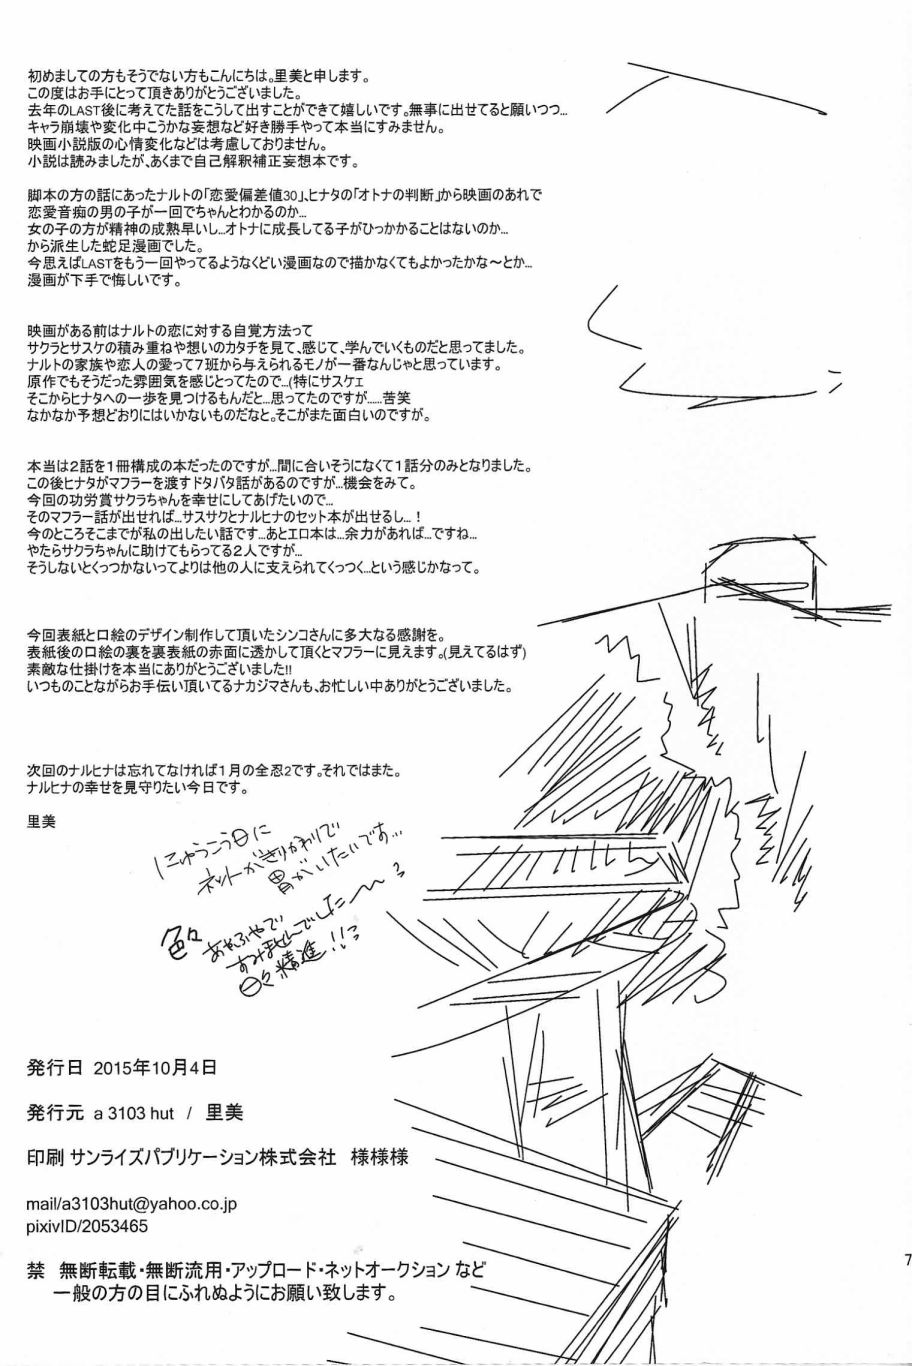 初めましての方もそうでない方もこんにちは。里美と申します。
この度はお手にとって頂きありがとうございました。
去年のLAST後に考えてた話をこうして出すことができて嬉しいです。無事に出せてると願いつつ…
キャラ崩壊や変化中こうかな妄想など好き勝手やって本当にすみません。
映画小説版の心情変化などは考慮しておりません。
小説は読みましたが、あくまで自己解釈補正妄想本です。
脚本の方の話にあったナルトの「恋愛偏差値30」、ヒナタの「オトナの判断」から映画のあれで
恋愛音痴の男の子が一回でちゃんとわかるのか…
女の子の方が精神の成熟早いし…オトナに成長してる子がひっかかることはないのか…
から派生した蛇足漫画でした。
今思えばLASTをもう一回やってるようなくどい漫画なので描かなくてもよかったかな～とか…
漫画が下手で悔しいです。
映画がある前はナルトの恋に対する自覚方法って
サクラとサスケの積み重ねや想いのカタチを見て、感じて、学んでいくものだと思ってました。
ナルトの家族や恋人の愛って７班から与えられるモノが一番なんじゃと思っています。
原作でもそうだった雰囲気を感じとってたので…(特にサスケェ
そこからヒナタへの一歩を見つけるもんだと…思ってたのですが……苦笑
なかなか予想どおりにはいかないものだなと。そこがまた面白いのですが。
本当は２話を１冊構成の本だったのですが…間に合いそうになくて１話分のみとなりました。
この後ヒナタがマフラーを渡すドタバタ話があるのですが…機会をみて。
今回の功労賞サクラちゃんを幸せにしてあげたいので…
そのマフラー話が出せれば…サスサクとナルヒナのセット本が出せるし…！
今のところそこまでが私の出したい話です…あとエロ本は…余力があれば…ですね…
やたらサクラちゃんに助けてもらってる２人ですが…
そうしないとくっつかないってよりは他の人に支えられてくっつく…という感じかなって。
今回表紙と口絵のデザイン制作して頂いたシンコさんに多大なる感謝を。
表紙後の口絵の裏を裏表紙の赤面に透かして頂くとマフラーに見えます。(見えてるはず)
素敵な仕掛けを本当にありがとうございました!!
いつものことながらお手伝い頂いてるナカジマさんも、お忙しい中ありがとうございました。
次回のナルヒナは忘れてなければ１月の全忍２です。それではまた。
ナルヒナの幸せを見守りたい今日です。
里美
にゅうこう日に
ネットがきりかわりで
胃がいたいです…
色々
あやふやで
すみませんでした～
日々精進!!
発行日 2015年10月4日
発行元 a 3103 hut / 里美
印刷 サンライズパブリケーション株式会社 様様様
mail/a3103hut@yahoo.co.jp
pixivID/2053465
禁 無断転載・無断流用・アップロード・ネットオークション など
一般の方の目にふれぬようにお願い致します。
7